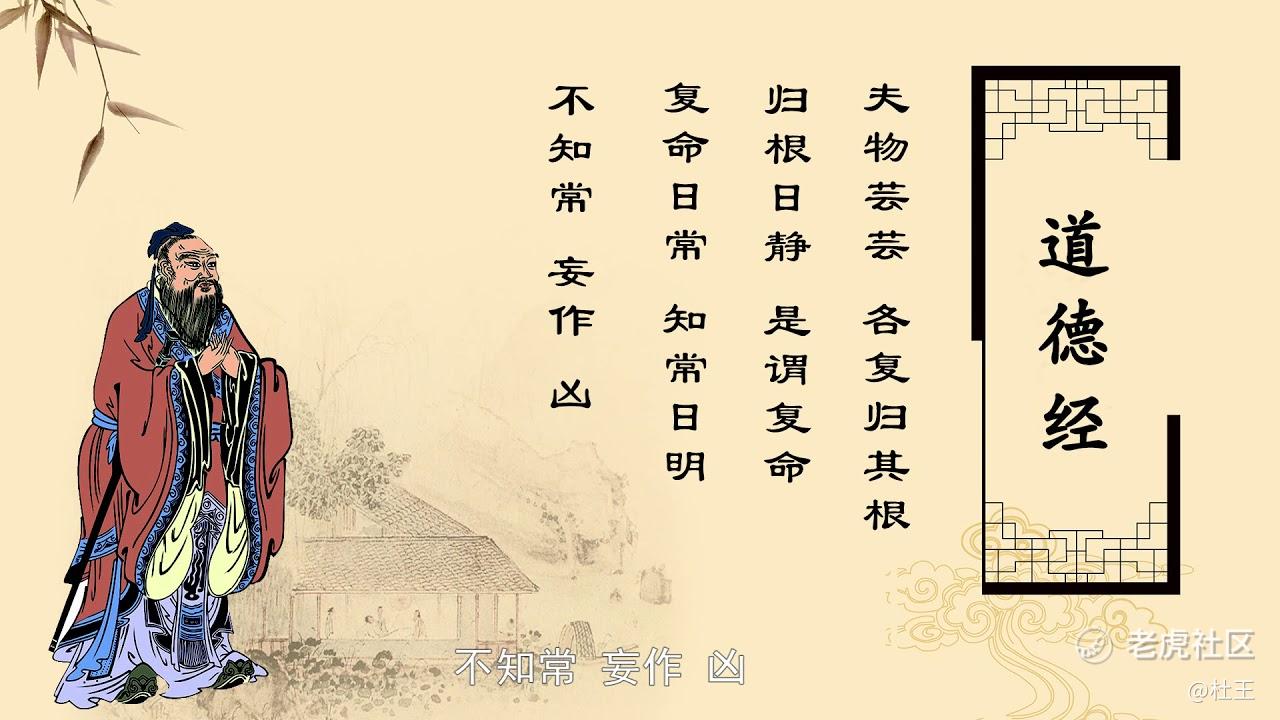 道德经
夫物芸芸 各复归其根
归根日静 是谓复命
复命日常 知常日明
不知常 妄作 凶
不知常 妄作 凶
老虎社区
@杜王